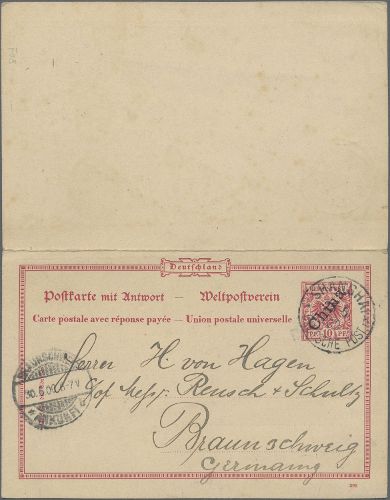 Deutschland
Postkarte mit Antwort – Weltpostverein
Carte postale avec réponse payée – Union postale universelle
China
10 PF
Herrn H. von Hagen
Reusch & Schultz
Braunschweig
Germany